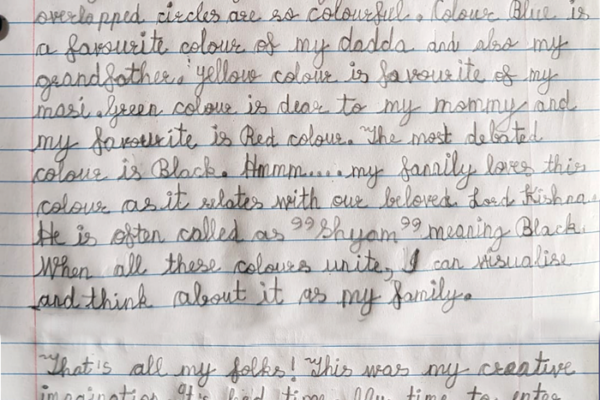 overlapped circles are so colourful. Colour Blue is
a favourite colour of my dadda and also my
grandfather. Yellow colour is favourite of my
masi. Green colour is dear to my mommy and
my favourite is Red colour. The most debated
colour is Black. Hmmm.... my family loves this
colour as it relates with our beloved Lord Krishna.
He is often called as "Shyam" meaning Black.
When all these colours unite, I can visualise
and think about it as my family.
That's all my folks! This was my creative
imagination. It's bed time. My time to enter